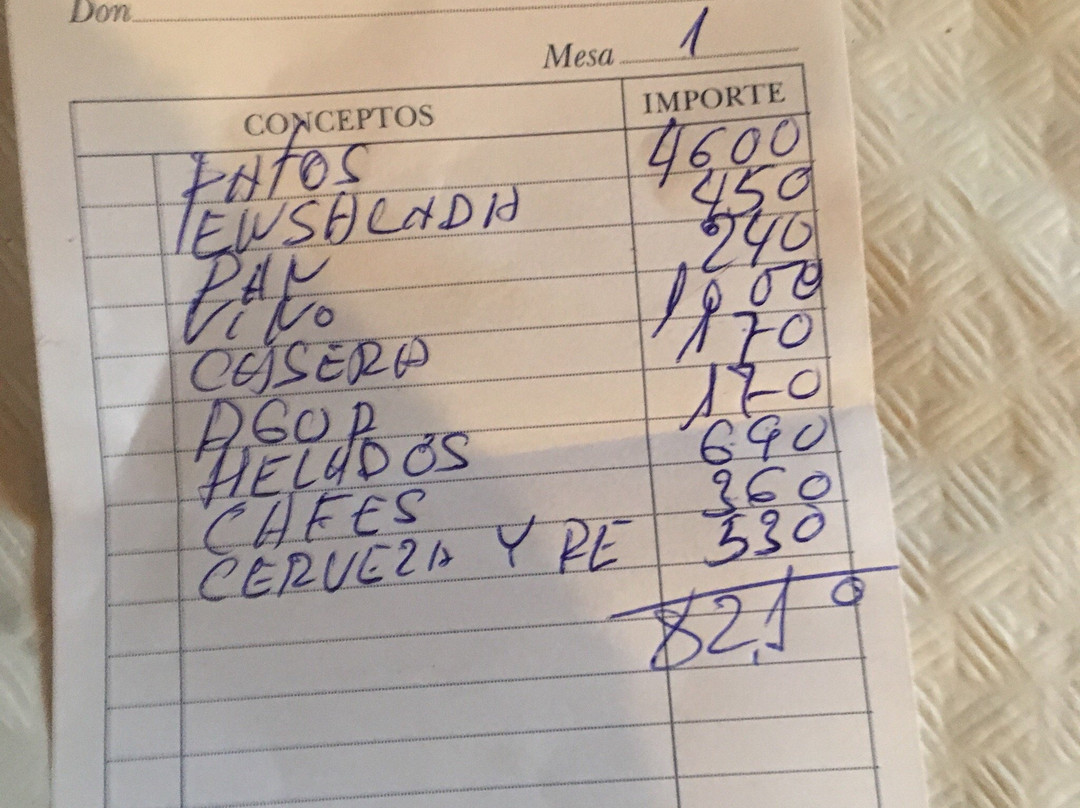 Don
Mesa 1
CONCEPTOS IMPORTE
PATOS 4600
ENSALADA 450
PAN 240
VINO 1000
CASERA 170
AGUA 170
HELADOS 690
CAFES 360
CERVEZA Y RE 530
82,10